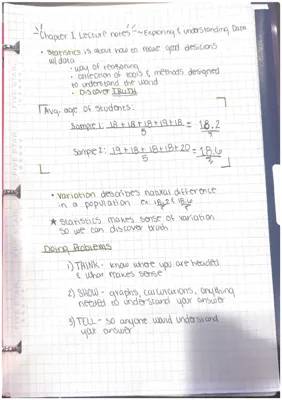 Chapter 1 Lecture notes ~ Exploring & Understanding Data
• Statistics is about how to make good desicions
w/ data
• way of reasoning
• collection of tools & methods designed
to understand the world
• Discover TRUTH
Avg. age of students:
Sample 1: 18 + 18 + 18 + 19 + 18 = 18.2
5
Sample 2: 19 + 18 + 18 + 18 + 20 = 18.6
5
• Variation describes natural difference
in a population. ex. 18.2 & 18.6
★ Statistics makes sense of variation
so we can discover truth
Doing Problems
1) THINK - know where you are headed
& what makes sense
2) SHOW - graphs, calculations, anything
needed to understand your answer
3) TELL - so anyone would understand
your answer